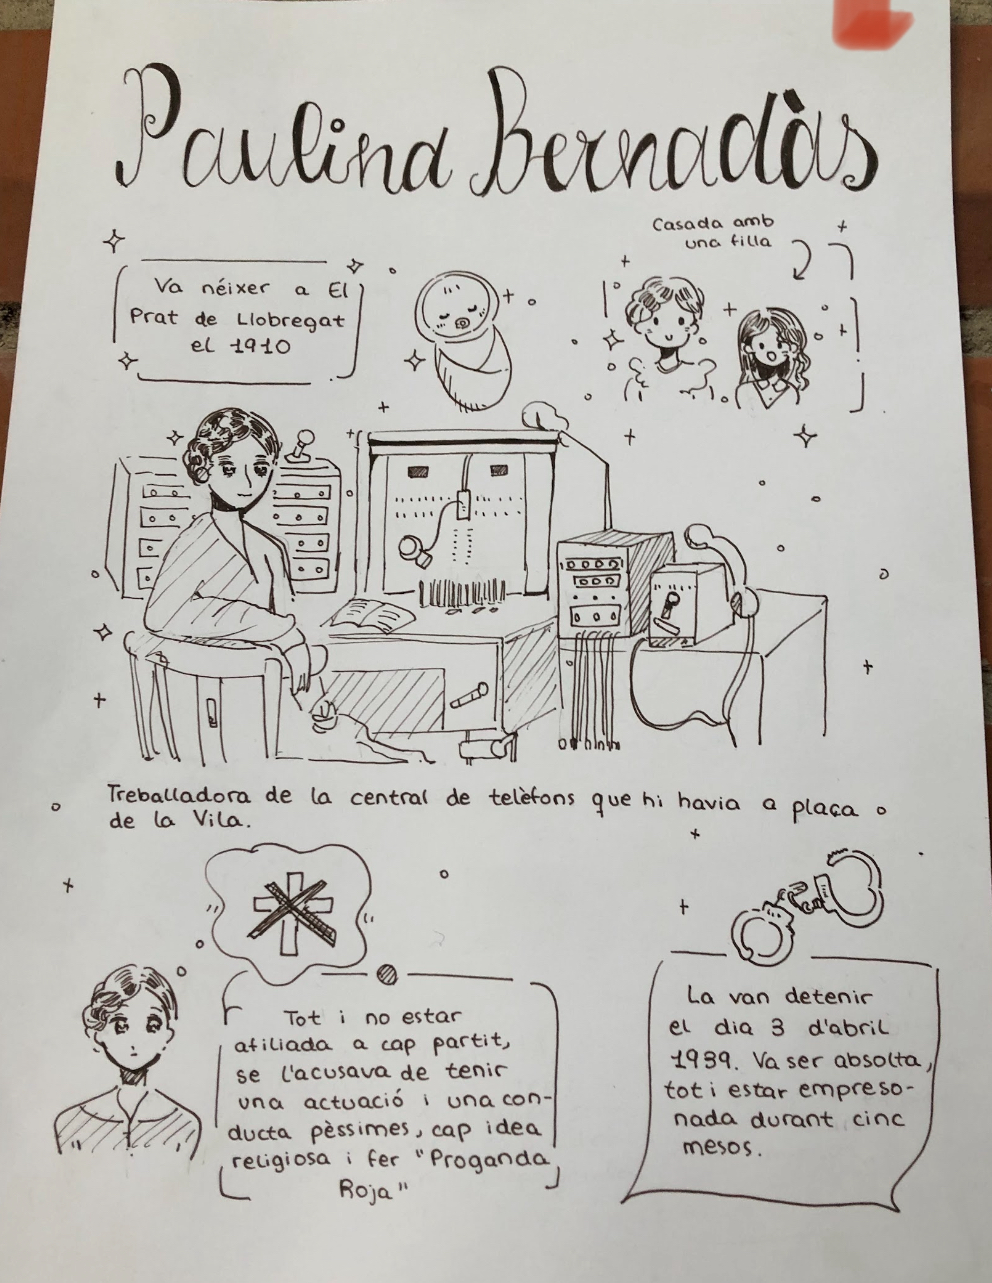 Paulina Bernadàs
Casada amb
una filla
Va néixer a El
Prat de Llobregat
el 1910
Treballadora de la central de telèfons que hi havia a plaça
de la Vila.
Tot i no estar
afiliada a cap partit,
se l'acusava de tenir
una actuació i una con-
ducta pèssimes, cap idea
religiosa i fer "Proganda
Roja"
La van detenir
el dia 3 d'abril
1939. Va ser absolta,
tot i estar empreso-
nada durant cinc
mesos.